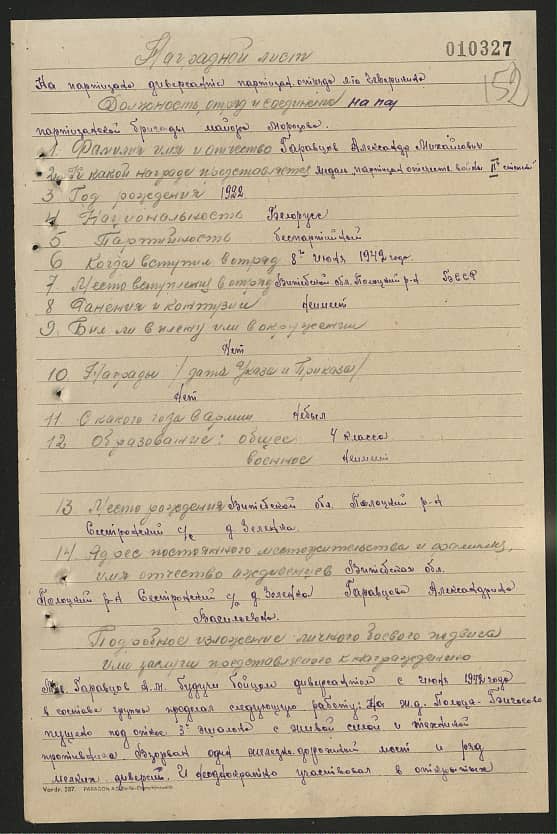 010327
152
Наградной лист
На партизана диверсанта партизан. отряда им. Чеверикина
Должность, отряд и соединение на нач
партизанской бригады майора Морозова.
1. Фамилия имя и отчество Гаравцов Александр Михайлович
2. К какой награде представляется медаль партизан отечеств войны II степени
3 Год рождения 1922
4 Национальность Белорусс
5 Партийность беспартийный
6 Когда вступил в отряд 8го июня 1942 года
7. Место вступления в отряд Витебской обл. Полоцкий р-н БССР
8 Ранения и контузии неимеет
9. Был ли в плену или в окружении
Нет
10 Награды /дата Указа и Приказа/
Нет
11 С какого года в Армии Небыл
12 Образование: общее 4 класса
военное неимеет
13 Место рождения Витебской обл. Полоцкий р-н
с/с д Зеленка.
14 Адрес постоянного местожительства и фамилия,
имя отчество иждевенцев Витебская обл.
Полоцкий р-н с/с д Зеленка Гаравцова Александрина
Васильевна.
Подробное изложение личного боевого подвига
или заслуги представляемого к награждению
Тов. Гаравцов А.М. будучи бойцом диверсантом с июня 1942 года
в составе группы проделал следующую работу: На ж.д. Полоцк-Бигосово
пущено под откос 3 эшалона с живой силой и техникой
противника Взорван один железно-дорожный мост и ряд
мелких диверсий. И неоднократно участвовал в открытых
Vordr. 287.